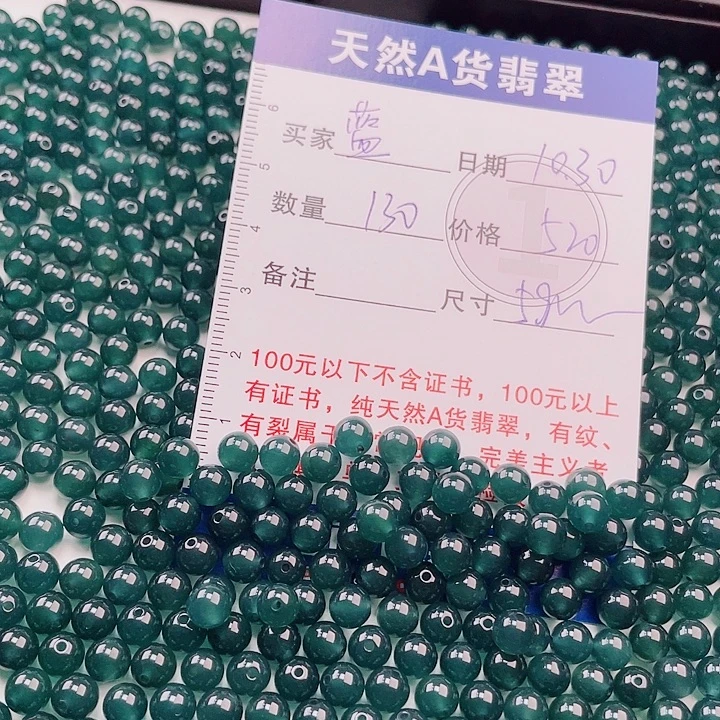 天然A货翡翠
买家 蓝 日期 1030
数量 130 价格 520
备注 尺寸
100元以下不含证书，100元以上
有证书，纯天然A货翡翠，有纹、
有裂属于
完美主义者
6
5
4
3
2
1